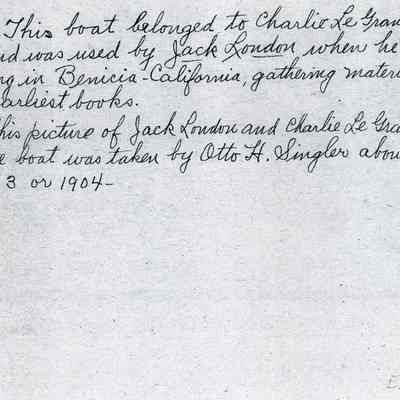 This boat belonged to Charlie Le Gran
nd was used by Jack London when he
ng in Benicia-California, gathering mater
arliest books.
his picture of Jack London and Charlie Le Gra
e boat was taken by Otto H. Singler abou
3 or 1904-